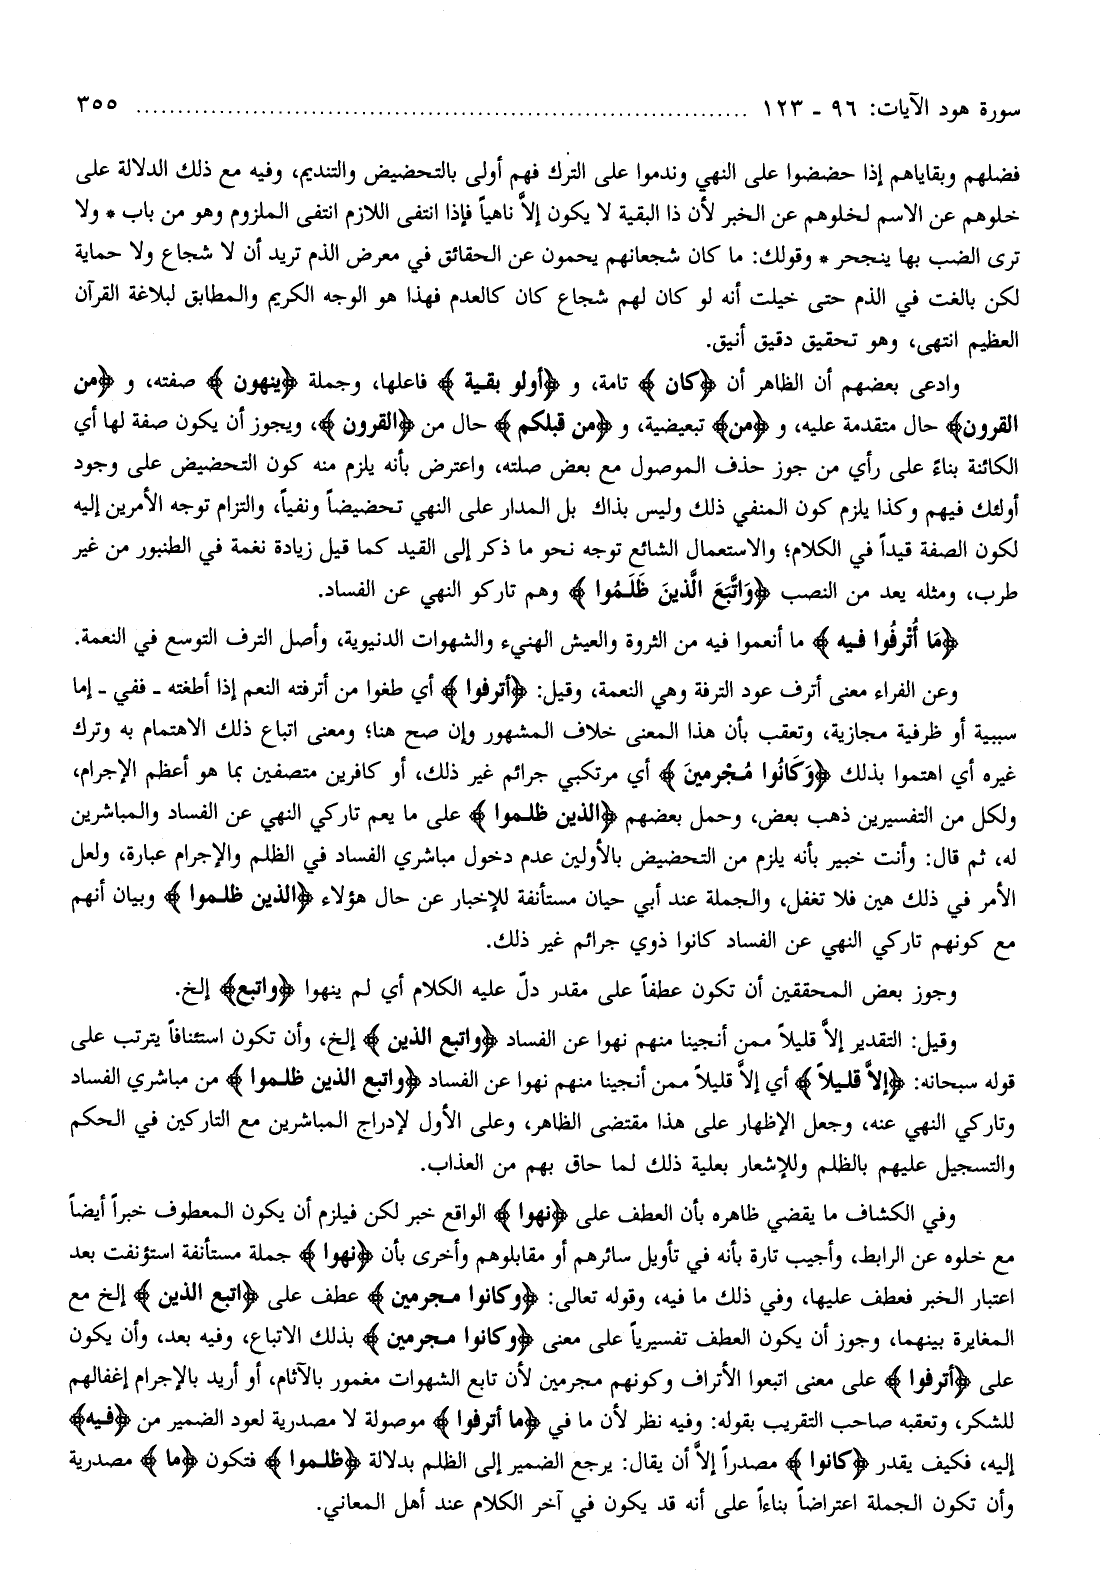 سورة هود الآيات: ٩٦ ـ ١٢٣ ........................................................................ ٣٥٥
فضلهم وبقاياهم إذا حضضوا على النهي وندموا على الترك فهم أولى بالتحضيض والتنديم، وفيه مع ذلك الدلالة على
خلوهم عن الاسم لخلوهم عن الخبر لأن ذا البقية لا يكون إلاَّ ناهياً فإذا انتفى اللازم انتفى الملزوم وهو من باب * ولا
ترى الضب بها ينجحر * وقولك: ما كان شجعانهم يحمون عن الحقائق في معرض الذم تريد أن لا شجاع ولا حماية
لكن بالغت في الذم حتى خيلت أنه لو كان لهم شجاع كان كالعدم فهذا هو الوجه الكريم والمطابق لبلاغة القرآن
العظيم انتهى، وهو تحقيق دقيق أنيق.
وادعى بعضهم أن الظاهر أن ﴿كان﴾ تامة، و ﴿أولو بقية﴾ فاعلها، وجملة ﴿ينهون﴾ صفته، و ﴿من
القرون﴾ حال متقدمة عليه، و ﴿من﴾ تبعيضية، و ﴿من قبلكم﴾ حال من ﴿القرون﴾، ويجوز أن يكون صفة لها أي
الكائنة بناءً على رأي من جوز حذف الموصول مع بعض صلته، واعترض بأنه يلزم منه كون التحضيض على وجود
أولئك فيهم وكذا يلزم كون المنفي ذلك وليس بذاك بل المدار على النهي تحضيضاً ونفياً، والتزام توجه الأمرين إليه
لكون الصفة قيداً في الكلام؛ والاستعمال الشائع توجه نحو ما ذكر إلى القيد كما قيل زيادة نغمة في الطنبور من غير
طرب، ومثله يعد من النصب ﴿وَاتَّبَعَ الَّذينَ ظَلَمُوا﴾ وهم تاركو النهي عن الفساد.
﴿مَا أُتْرِفُوا فيه﴾ ما أنعموا فيه من الثروة والعيش الهنيء والشهوات الدنيوية، وأصل الترف التوسع في النعمة.
وعن الفراء معنى أترف عود الترفة وهي النعمة، وقيل: ﴿أترفوا﴾ أي طغوا من أترفته النعم إذا أطغته ـ ففي ـ إما
سببية أو ظرفية مجازية، وتعقب بأن هذا المعنى خلاف المشهور وإن صح هنا؛ ومعنى اتباع ذلك الاهتمام به وترك
غيره أي اهتموا بذلك ﴿وَكَانُوا مُجْرمينَ﴾ أي مرتكبي جرائم غير ذلك، أو كافرين متصفين بما هو أعظم الإجرام،
ولكل من التفسيرين ذهب بعض، وحمل بعضهم ﴿الذين ظلموا﴾ على ما يعم تاركي النهي عن الفساد والمباشرين
له، ثم قال: وأنت خبير بأنه يلزم من التحضيض بالأولين عدم دخول مباشري الفساد في الظلم والإجرام عبارة، ولعل
الأمر في ذلك هين فلا تغفل، والجملة عند أبي حيان مستأنفة للإخبار عن حال هؤلاء ﴿الذين ظلموا﴾ وبيان أنهم
مع كونهم تاركي النهي عن الفساد كانوا ذوي جرائم غير ذلك.
وجوز بعض المحققين أن تكون عطفاً على مقدر دلّ عليه الكلام أي لم ينهوا ﴿واتبع﴾ إلخ.
وقيل: التقدير إلاَّ قليلاً ممن أنجينا منهم نهوا عن الفساد ﴿واتبع الذين﴾ إلخ، وأن تكون استئنافاً يترتب على
قوله سبحانه: ﴿إلاَّ قليلاً﴾ أي إلاَّ قليلاً ممن أنجينا منهم نهوا عن الفساد ﴿واتبع الذين ظلموا﴾ من مباشري الفساد
وتاركي النهي عنه، وجعل الإظهار على هذا مقتضى الظاهر، وعلى الأول لإدراج المباشرين مع التاركين في الحكم
والتسجيل عليهم بالظلم وللإشعار بعلية ذلك لما حاق بهم من العذاب.
وفي الكشاف ما يقضي ظاهره بأن العطف على ﴿نهوا﴾ الواقع خبر لكن فيلزم أن يكون المعطوف خبراً أيضاً
مع خلوه عن الرابط، وأجيب تارة بأنه في تأويل سائرهم أو مقابلوهم وأخرى بأن ﴿نهوا﴾ جملة مستأنفة استؤنفت بعد
اعتبار الخبر فعطف عليها، وفي ذلك ما فيه، وقوله تعالى: ﴿وكانوا مجرمين﴾ عطف على ﴿اتبع الذين﴾ إلخ مع
المغايرة بينهما، وجوز أن يكون العطف تفسيرياً على معنى ﴿وكانوا مجرمين﴾ بذلك الاتباع، وفيه بعد، وأن يكون
على ﴿أترفوا﴾ على معنى اتبعوا الأتراف وكونهم مجرمين لأن تابع الشهوات مغمور بالآثام، أو أريد بالإجرام إغفالهم
للشكر، وتعقبه صاحب التقريب بقوله: وفيه نظر لأن ما في ﴿ما أترفوا﴾ موصولة لا مصدرية لعود الضمير من ﴿فيه﴾
إليه، فكيف يقدر ﴿كانوا﴾ مصدراً إلاَّ أن يقال: يرجع الضمير إلى الظلم بدلالة ﴿ظلموا﴾ فتكون ﴿ما﴾ مصدرية
وأن تكون الجملة اعتراضاً بناءاً على أنه قد يكون في آخر الكلام عند أهل المعاني.